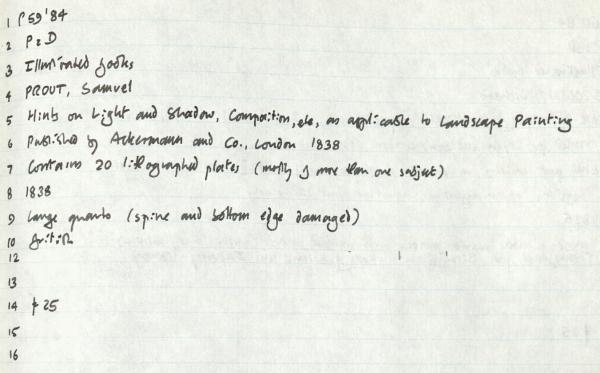 1 P59'84
2 P & D
3 Illustrated books
4 PROUT, Samuel
5 Hints on Light and Shadow, Composition, etc, as applicable to Landscape Painting
6 Published by Ackermann and Co., London 1838
7 Contains 20 lithographed plates (mostly of more than one subject)
8 1838
9 Large quarto (spine and bottom edge damaged)
10 British
12
13
14 £25
15
16